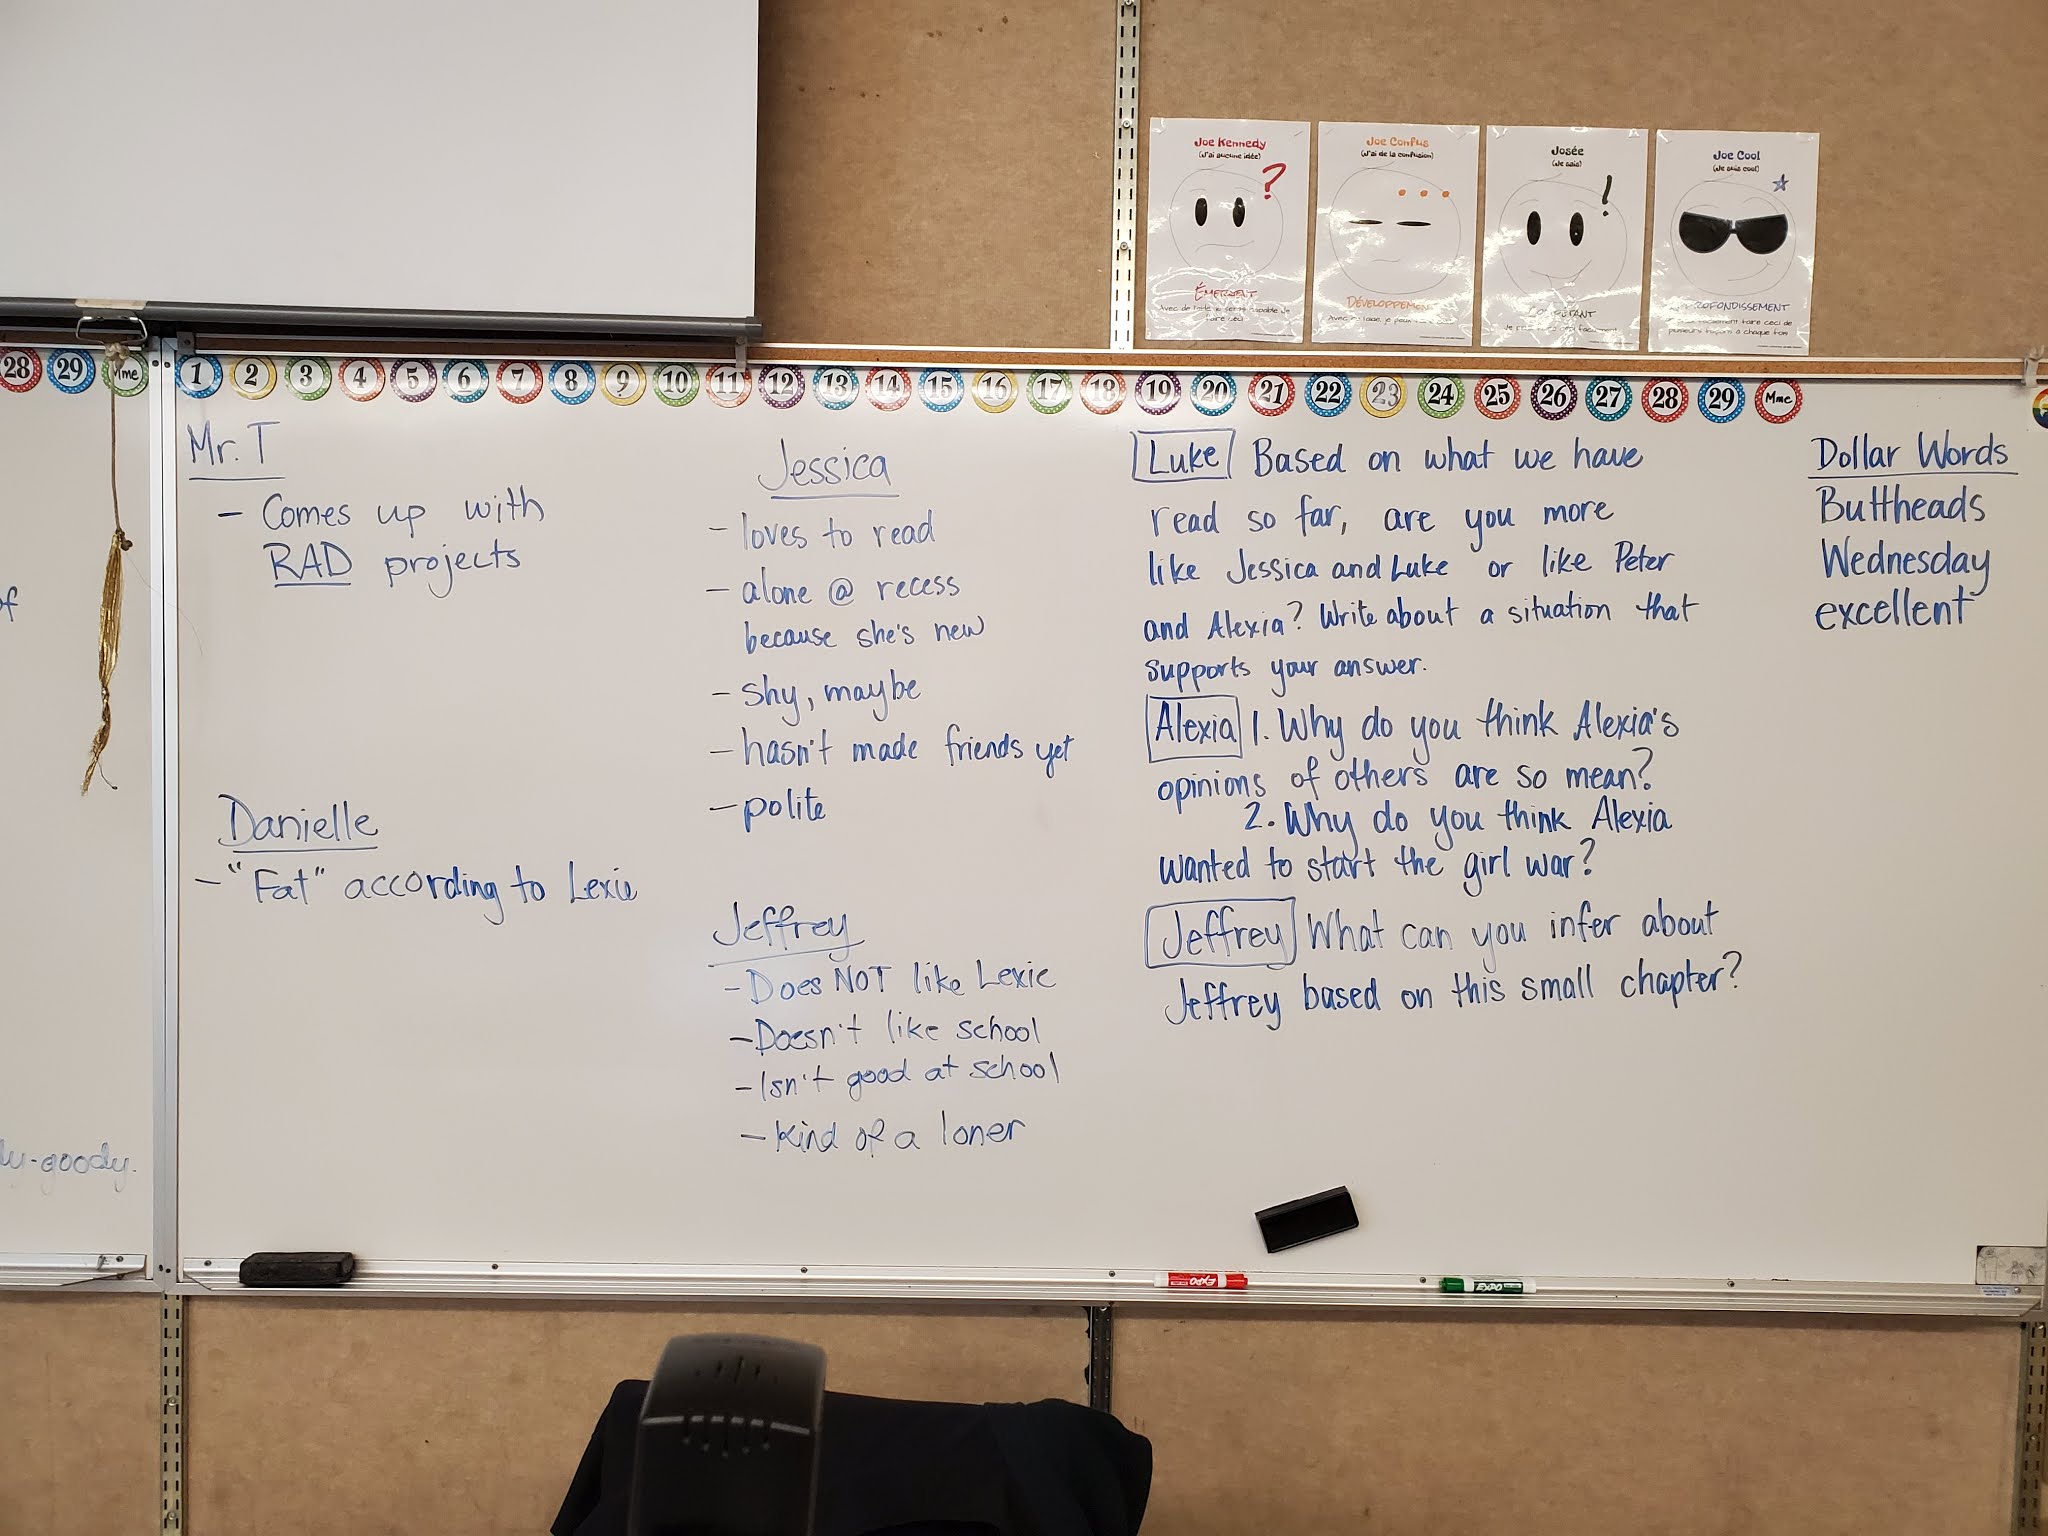 Joe Kennedy
(J'ai aucune idée)
?
ÉMERGENT
Joe Confus
(J'ai de la confusion)
...
DÉVELOPPEMENT
Josée
(Je sais)
!
Joe Cool
(Je suis cool)
APPROFONDISSEMENT
28 29 Mme
1 2 3 4 5 6 7 8 9 10 11 12 13 14 15 16 17 18 19 20 21 22 23 24 25 26 27 28 29 Mme
Mr. T
- Comes up with
RAD projects
Danielle
- "Fat" according to Lexie
Jessica
- loves to read
- alone @ recess
because she's new
- shy, maybe
- hasn't made friends yet
- polite
Jeffrey
- Does NOT like Lexie
- Doesn't like school
- Isn't good at school
- kind of a loner
Luke Based on what we have
read so far, are you more
like Jessica and Luke or like Peter
and Alexia? Write about a situation that
supports your answer.
Alexia 1. Why do you think Alexia's
opinions of others are so mean?
2. Why do you think Alexia
wanted to start the girl war?
Jeffrey What can you infer about
Jeffrey based on this small chapter?
Dollar Words
Buttheads
Wednesday
excellent
-goody.
EXPO
EXPO